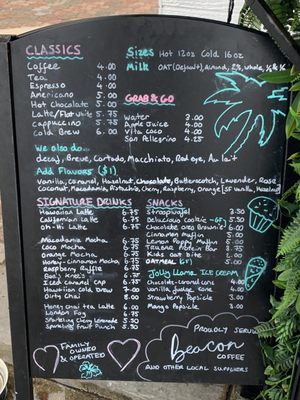 CLASSICS
Coffee 4.00
Tea 4.00
Espresso 4.00
Americano 5.00
Hot Chocolate 5.00
Latte/Flat white 5.75
Cappuccino 5.75
Cold Brew 6.00
Sizes Hot 12oz Cold 16oz
Milk OAT (Default), Almond, 2%, Whole, ½ & ½
GRAB & GO
Water 3.00
Apple Juice 4.00
Vita Coco 4.00
San Pellegrino 4.25
We also do...
decaf, Breve, Cortado, Macchiato, Red eye, Au lait
Add Flavors ($1)
Vanilla, Caramel, Hazelnut, Chocolate, Butterscotch, Lavender, Rose
Coconut, Macadamia, Pistachio, Cherry, Raspberry, Orange (SF Vanilla, Hazelnut)
SIGNATURE DRINKS
Hawaiian Latte 6.75
Californian Latte 6.75
Oh-Hi Latte 6.75
Macadamia Mocha 6.75
Coco Mocha 6.75
Orange Mocha 6.75
Honey-Cinnamon Mocha 6.75
Raspberry Ripple 6.75
6.75
Iced Caramel Cap 6.75
Hawaiian Cold Brew 7.00
Dirty Chai 6.75
Honey Chai Tea Latte 6.00
London Fog 6.75
Sparkling Lemonade 5.50
Sparkling Fruit Punch 5.50
SNACKS
Stroopwafel 3.50
Delicious Cookie -GF- 5.00
Chocolate Oreo Brownie 5.00
Cinnamon Muffin 5.00
Lemon Poppy Muffin 5.00
Protein Bar
Kids oat bite
OATMEAL GF
Jolly Llama ICE CREAM
Chocolate-caramel cone
Vanilla fudge cone
Strawberry Popsicle 3.50
Mango Popsicle 3.50
FAMILY
OWNED
& OPERATED
PROUDLY SERVING
Beacon
COFFEE
AND OTHER LOCAL SUPPLIERS